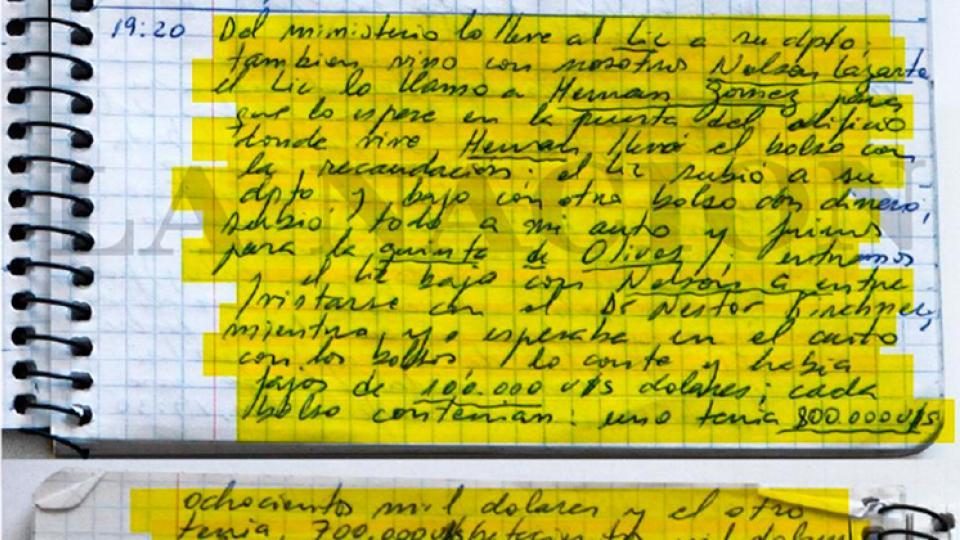 19:20 Del ministerio lo lleve al Lic a su dpto,
tambien vino con nosotros Nelson Lazarte
el Lic lo llamo a Hernan Gomez para
que lo espere en la puerta del edificio
donde vive Hernan llevó el bolso con
la recaudación: el Lic subió a su
dpto y bajo con otro bolso con dinero,
subió todo a mi auto y fuimos
para la quinta de Olivos; entramos
y el Lic bajo con Nelson a entre
/vistarse con el Dr Nestor Kirchner,
mientras yo esperaba en el auto
con los bolsos, lo conte y habia
fajos de 100.000 U$S dolares; cada
bolso contenian: uno tenia 800.000 U$S
LA NACION
ochocientos mil dolares y el otro
tenia, 700.000 U$S setecientos mil dolares